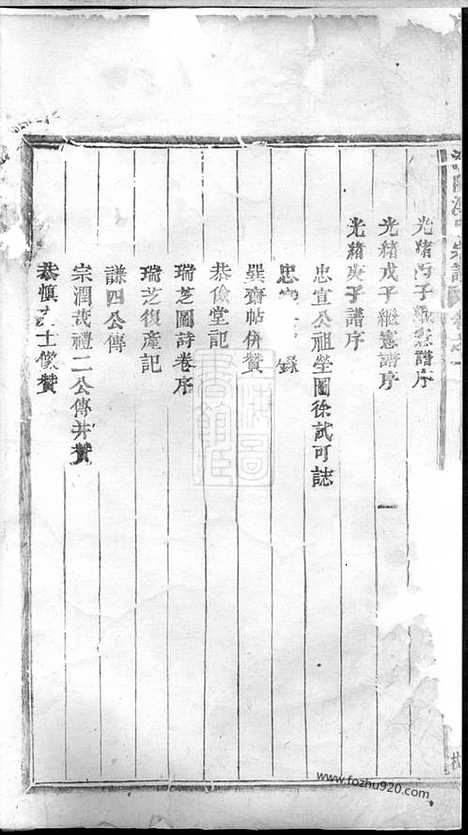 光緒丙子繼憲譜序
光緒戊子繼憲譜序
光緒庚子譜序
忠宣公祖塋圖徐試可誌
忠宣 錄
巽齋帖併贊
恭儉堂記
瑞芝圖詩卷序
瑞芝復產記
謙四公傳
宗潤哉禮二公傳并贊
恭慎 士像贊
www.fozhu920.com